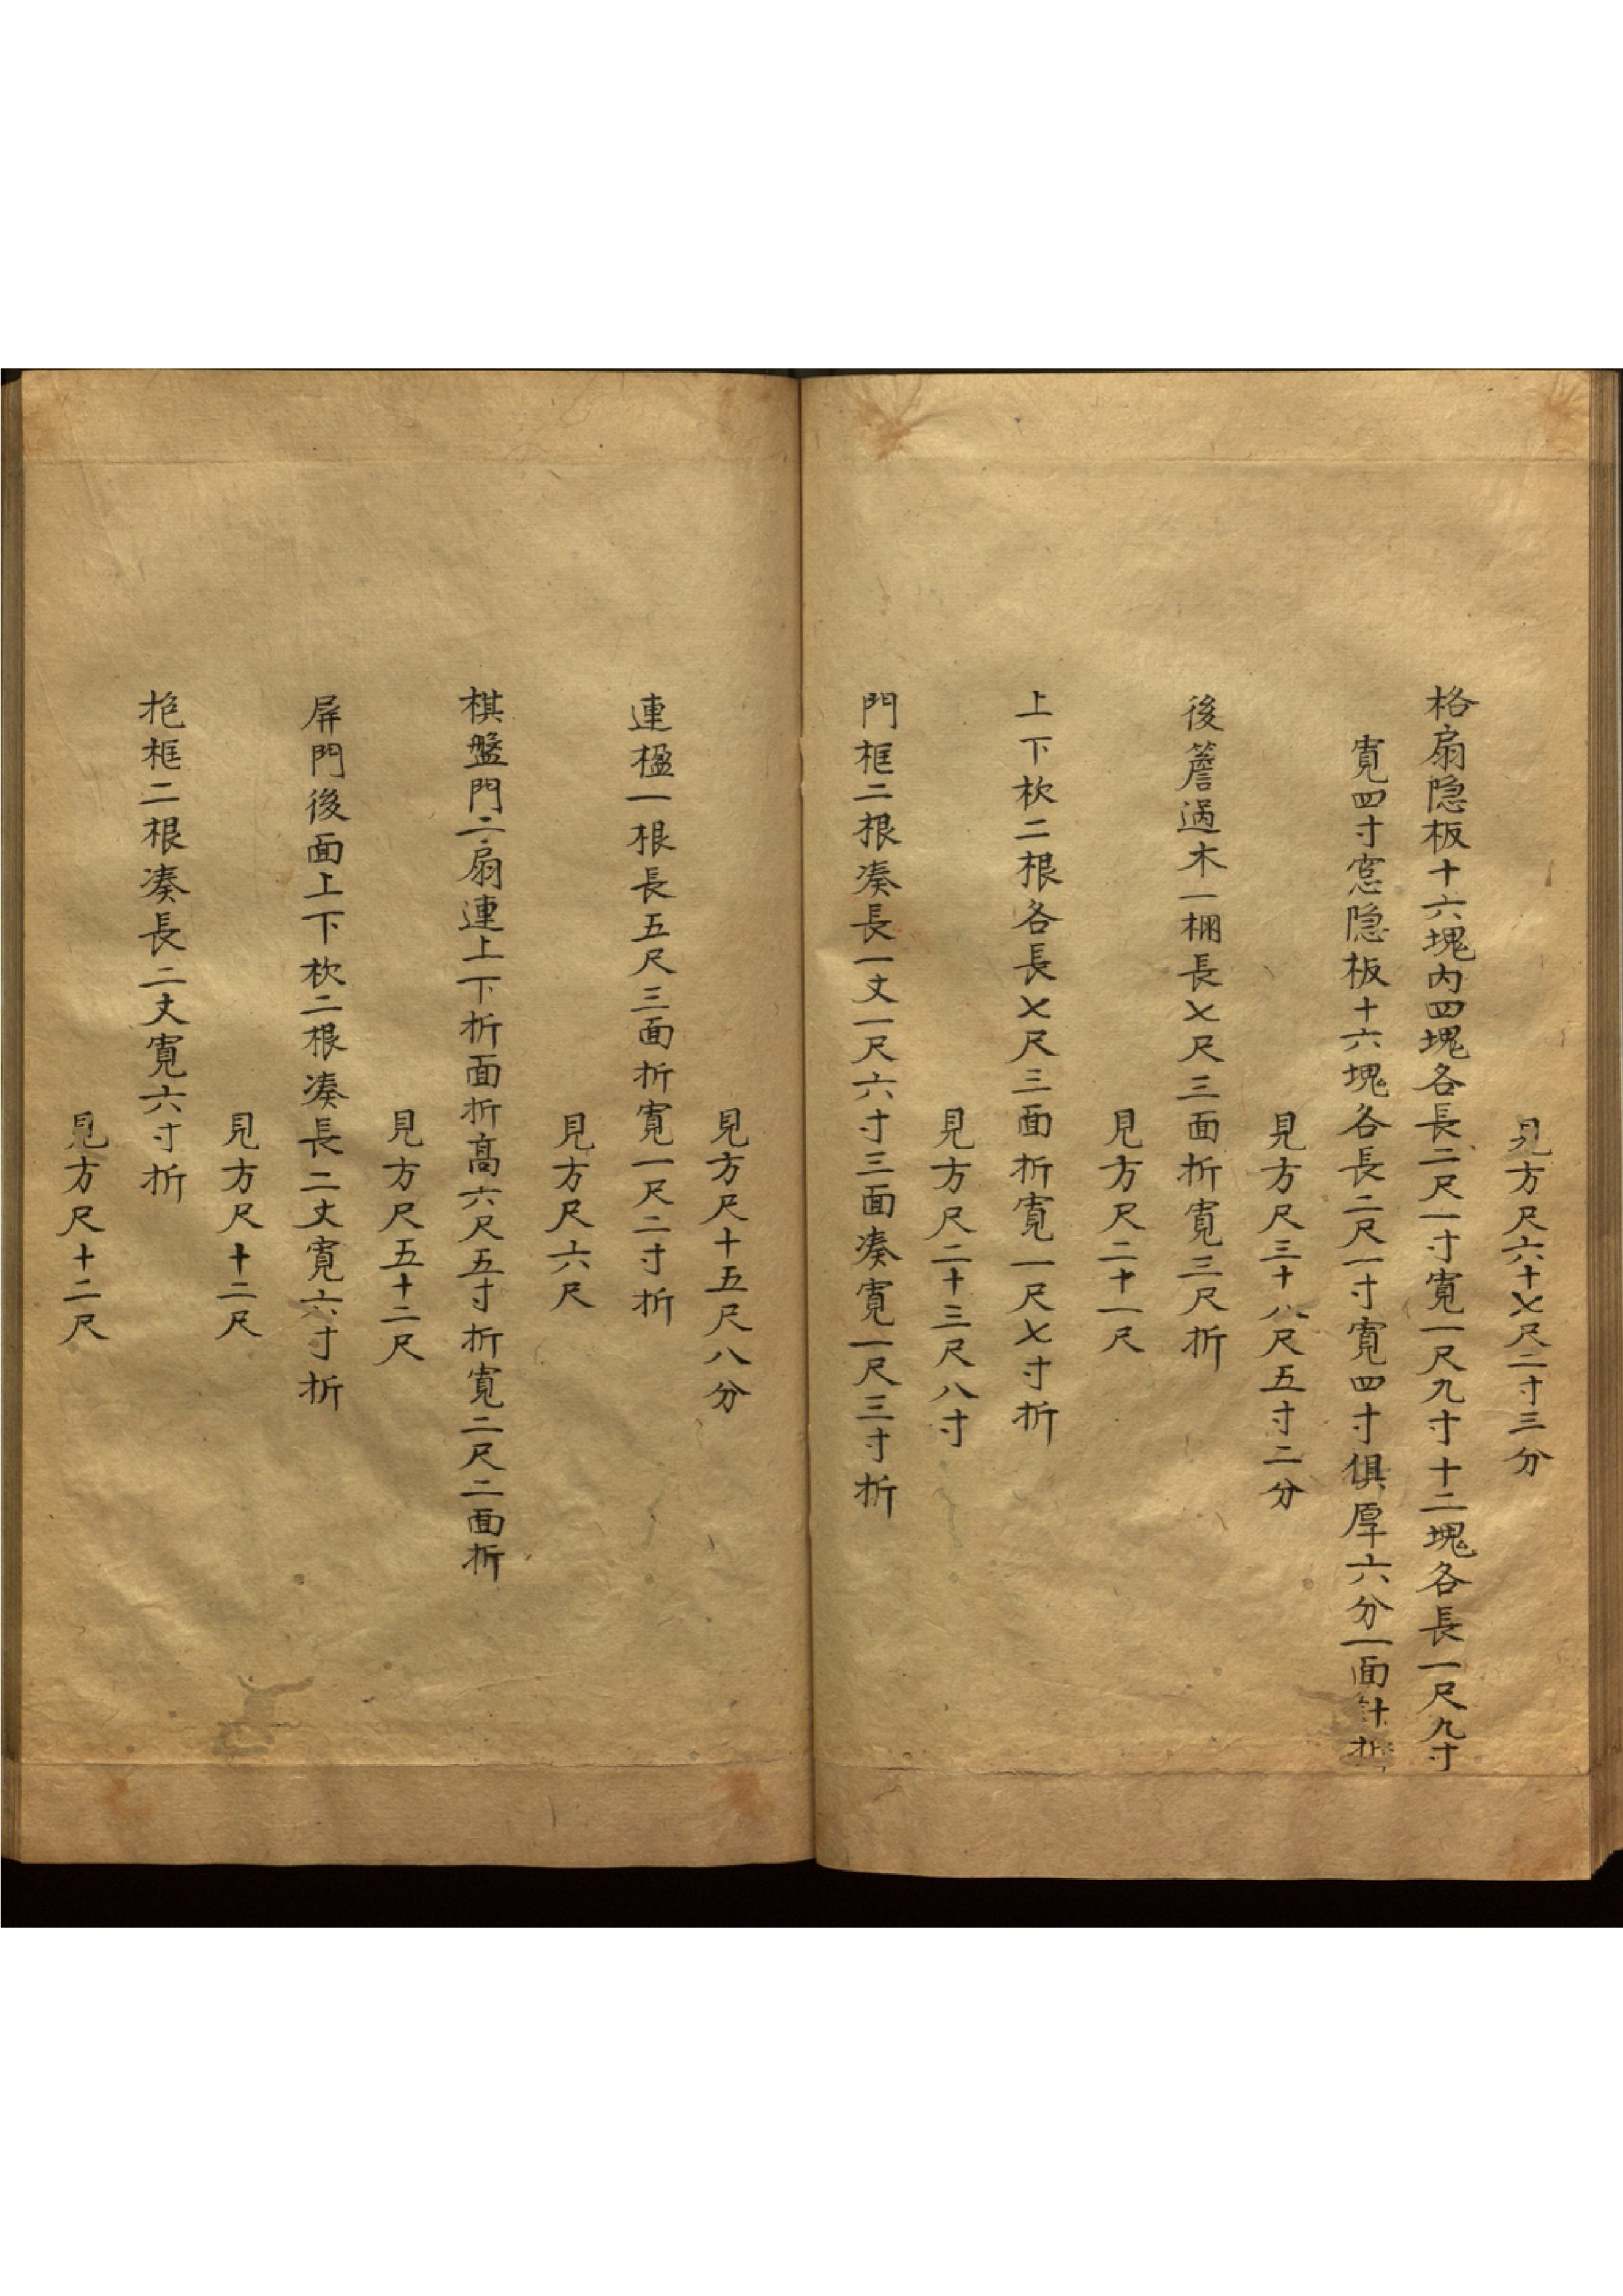 見方尺六十七尺二寸三分
格扇隐板十六塊内四塊各長二尺一寸寬一尺九寸十二塊各長一尺九寸
寬四寸窓隐板十六塊各長二尺一寸寬四寸俱厚六分一面計折
見方尺三十八尺五寸二分
後簷過木一槶長七尺三面折寬三尺折
見方尺二十一尺
上下枕二根各長七尺三面折寬一尺七寸折
見方尺二十三尺八寸
門框二根凑長一丈一尺六寸三面凑寬一尺三寸折
見方尺十五尺八分
連楹一根長五尺三面折寬一尺二寸折
見方尺六尺
棋盤門二扇連上下折面折高六尺五寸折寬二尺二面折
見方尺五十二尺
屏門後面上下枕二根凑長二丈寬六寸折
見方尺十二尺
抱框二根凑長二丈寬六寸折
見方尺十二尺